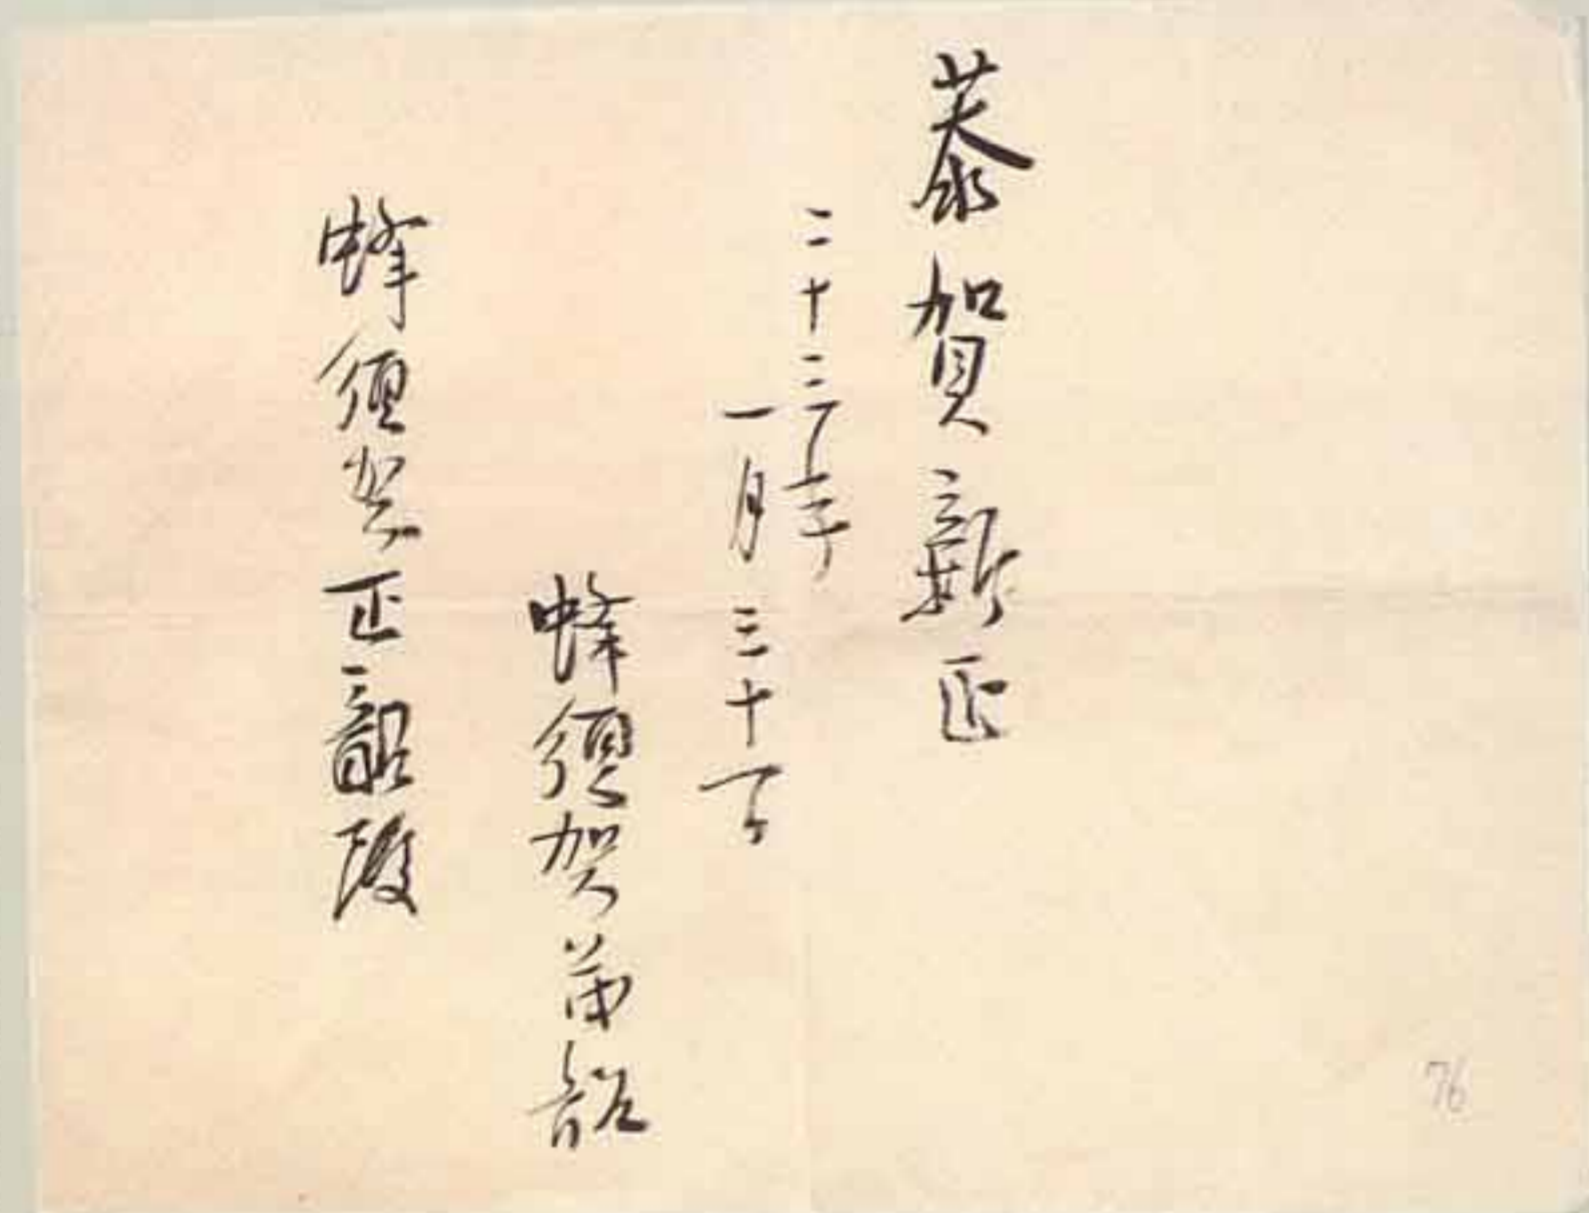 恭賀新正
二十三年
一月三十一日
蜂須賀茂韶
蜂須賀正韶殿
76